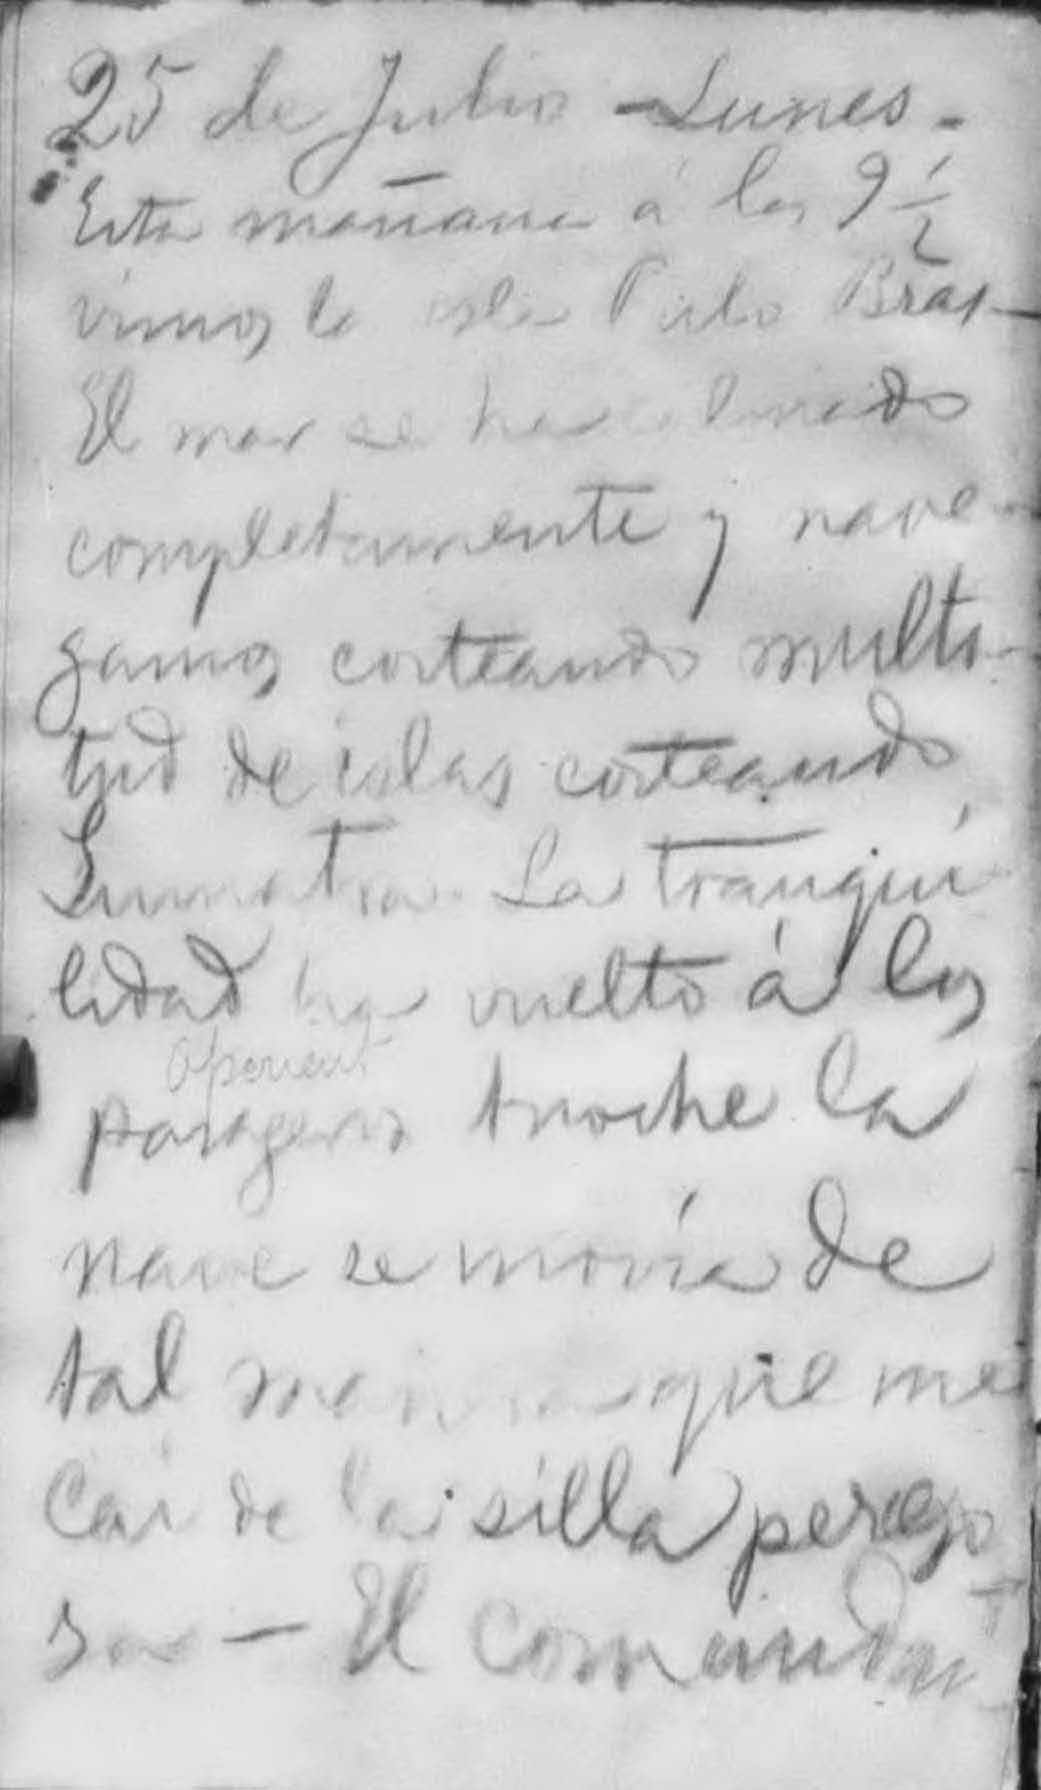 25 de Julio - Lunes -
Esta mañana á las 9 1/2
vimos la isla Pulo Bras -
El mar se ha calmado
completamente y nave-
gamos costeando multi-
tud de islas costeando
Sumatra. La tranqui-
lidad ha vuelto á los
pasageros Anoche la
nave se movía de
tal manera que me
caí de la silla perezo
sa - El comandant